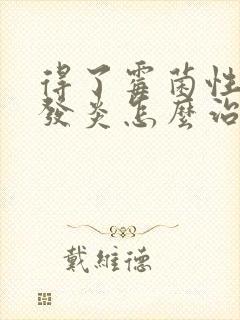 得了霉菌性
發炎怎麼治
戴維德